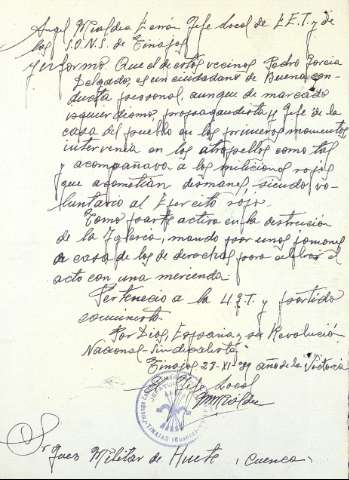 Angel Miralda Ferrer Jefe Local de F.E.T. y de
las J.O.N.S. de Tinajas
Informo Que el de estos vecinos Pedro Garcia
Delgado, es un ciudadano de Buena con-
ducta personal, aunque de marcado
izquierdismo, propagandista y Jefe de la
casa del pueblo en los primeros momentos
intervenia en los atropellos como tal
y acompañava a los milicianos rojos
que acometian desmanes, siendo vo-
luntario al Ejercito rojo.
Tomo parte activa en la destrucion
de la Iglecia, mando por unos jamones
a casa de los de derechas para celebrar el
acto con una merienda
Pertenecio a la U.G.T. y partido
comunista
Por Dios, España y su Revolución
Nacional-Sindicalista
Tinajas 27-XI-39 año de la Victoria
Jefe Local
Sr Juez Militar de Huete (Cuenca)